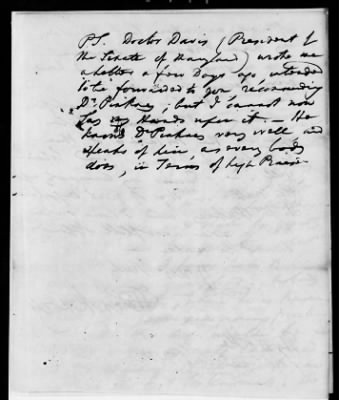 P.S. Doctor Davis (President of
the Senate of Maryland) wrote me
a letter a few Days ago, intended
to be forwarded to you recommending
Dr. Pinkney, but I cannot now
lay my Hands upon it — He
knows Dr. Pinkney very well and
speaks of him as every body
does, in Terms of high Praise